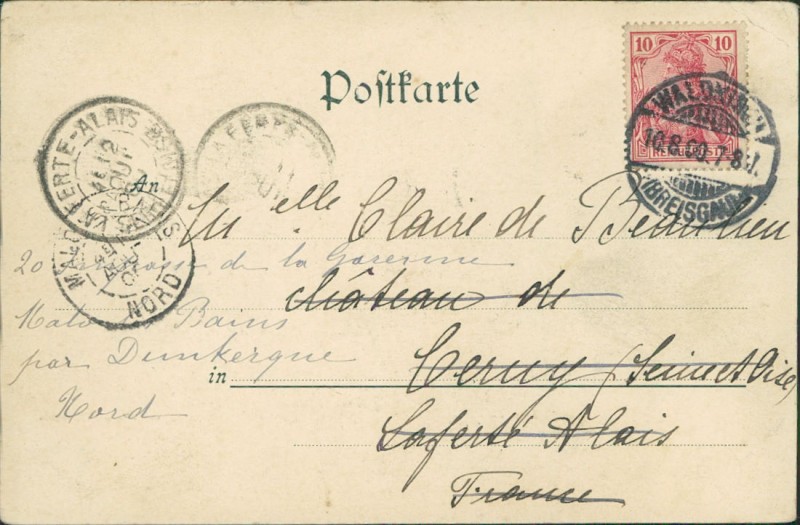 Postkarte
10 10
REICHSPOST
WALDKIRCH
10.8.00.7-8
(BREISGAU)
LA FERTE-ALAIS
12
AOUT
MALO
NORD
LA FERTE
11
An Mlle Claire de Beaulieu
20 de la Garenne
château de
Malo Bains
par Dunkerque
in Cerny (Seine et Oise)
Nord
Laferté Alais
France